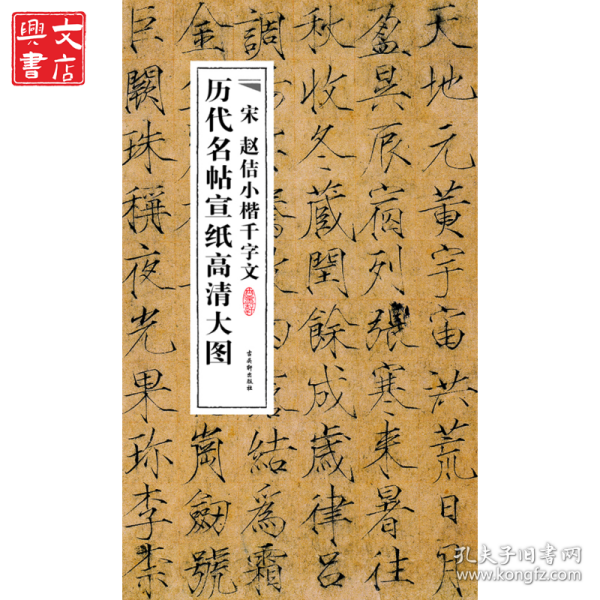 文店
興書
天地元黃宇宙洪荒日月
盈昃辰宿列張寒来暑往
秋收冬蔵閏餘成歳律呂
調
結爲霜
金
崗劔號
巨闕珠稱夜光果珍李柰
宋 赵佶小楷千字文
历代名帖宣纸高清大图
古吴轩出版社
孔夫子旧书网
www.kongfz.com